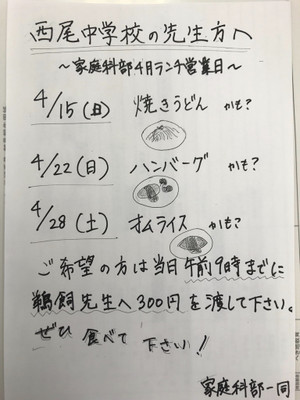 西尾中学校の先生方へ
～家庭科部4月ランチ営業日～
4/15(日) 焼きうどん かも?
4/22(日) ハンバーグ かも?
4/28(土) オムライス かも?
ご希望の方は当日午前9時までに
鵜飼先生へ300円を渡して下さい。
ぜひ 食べて 下さい!
家庭科部一同